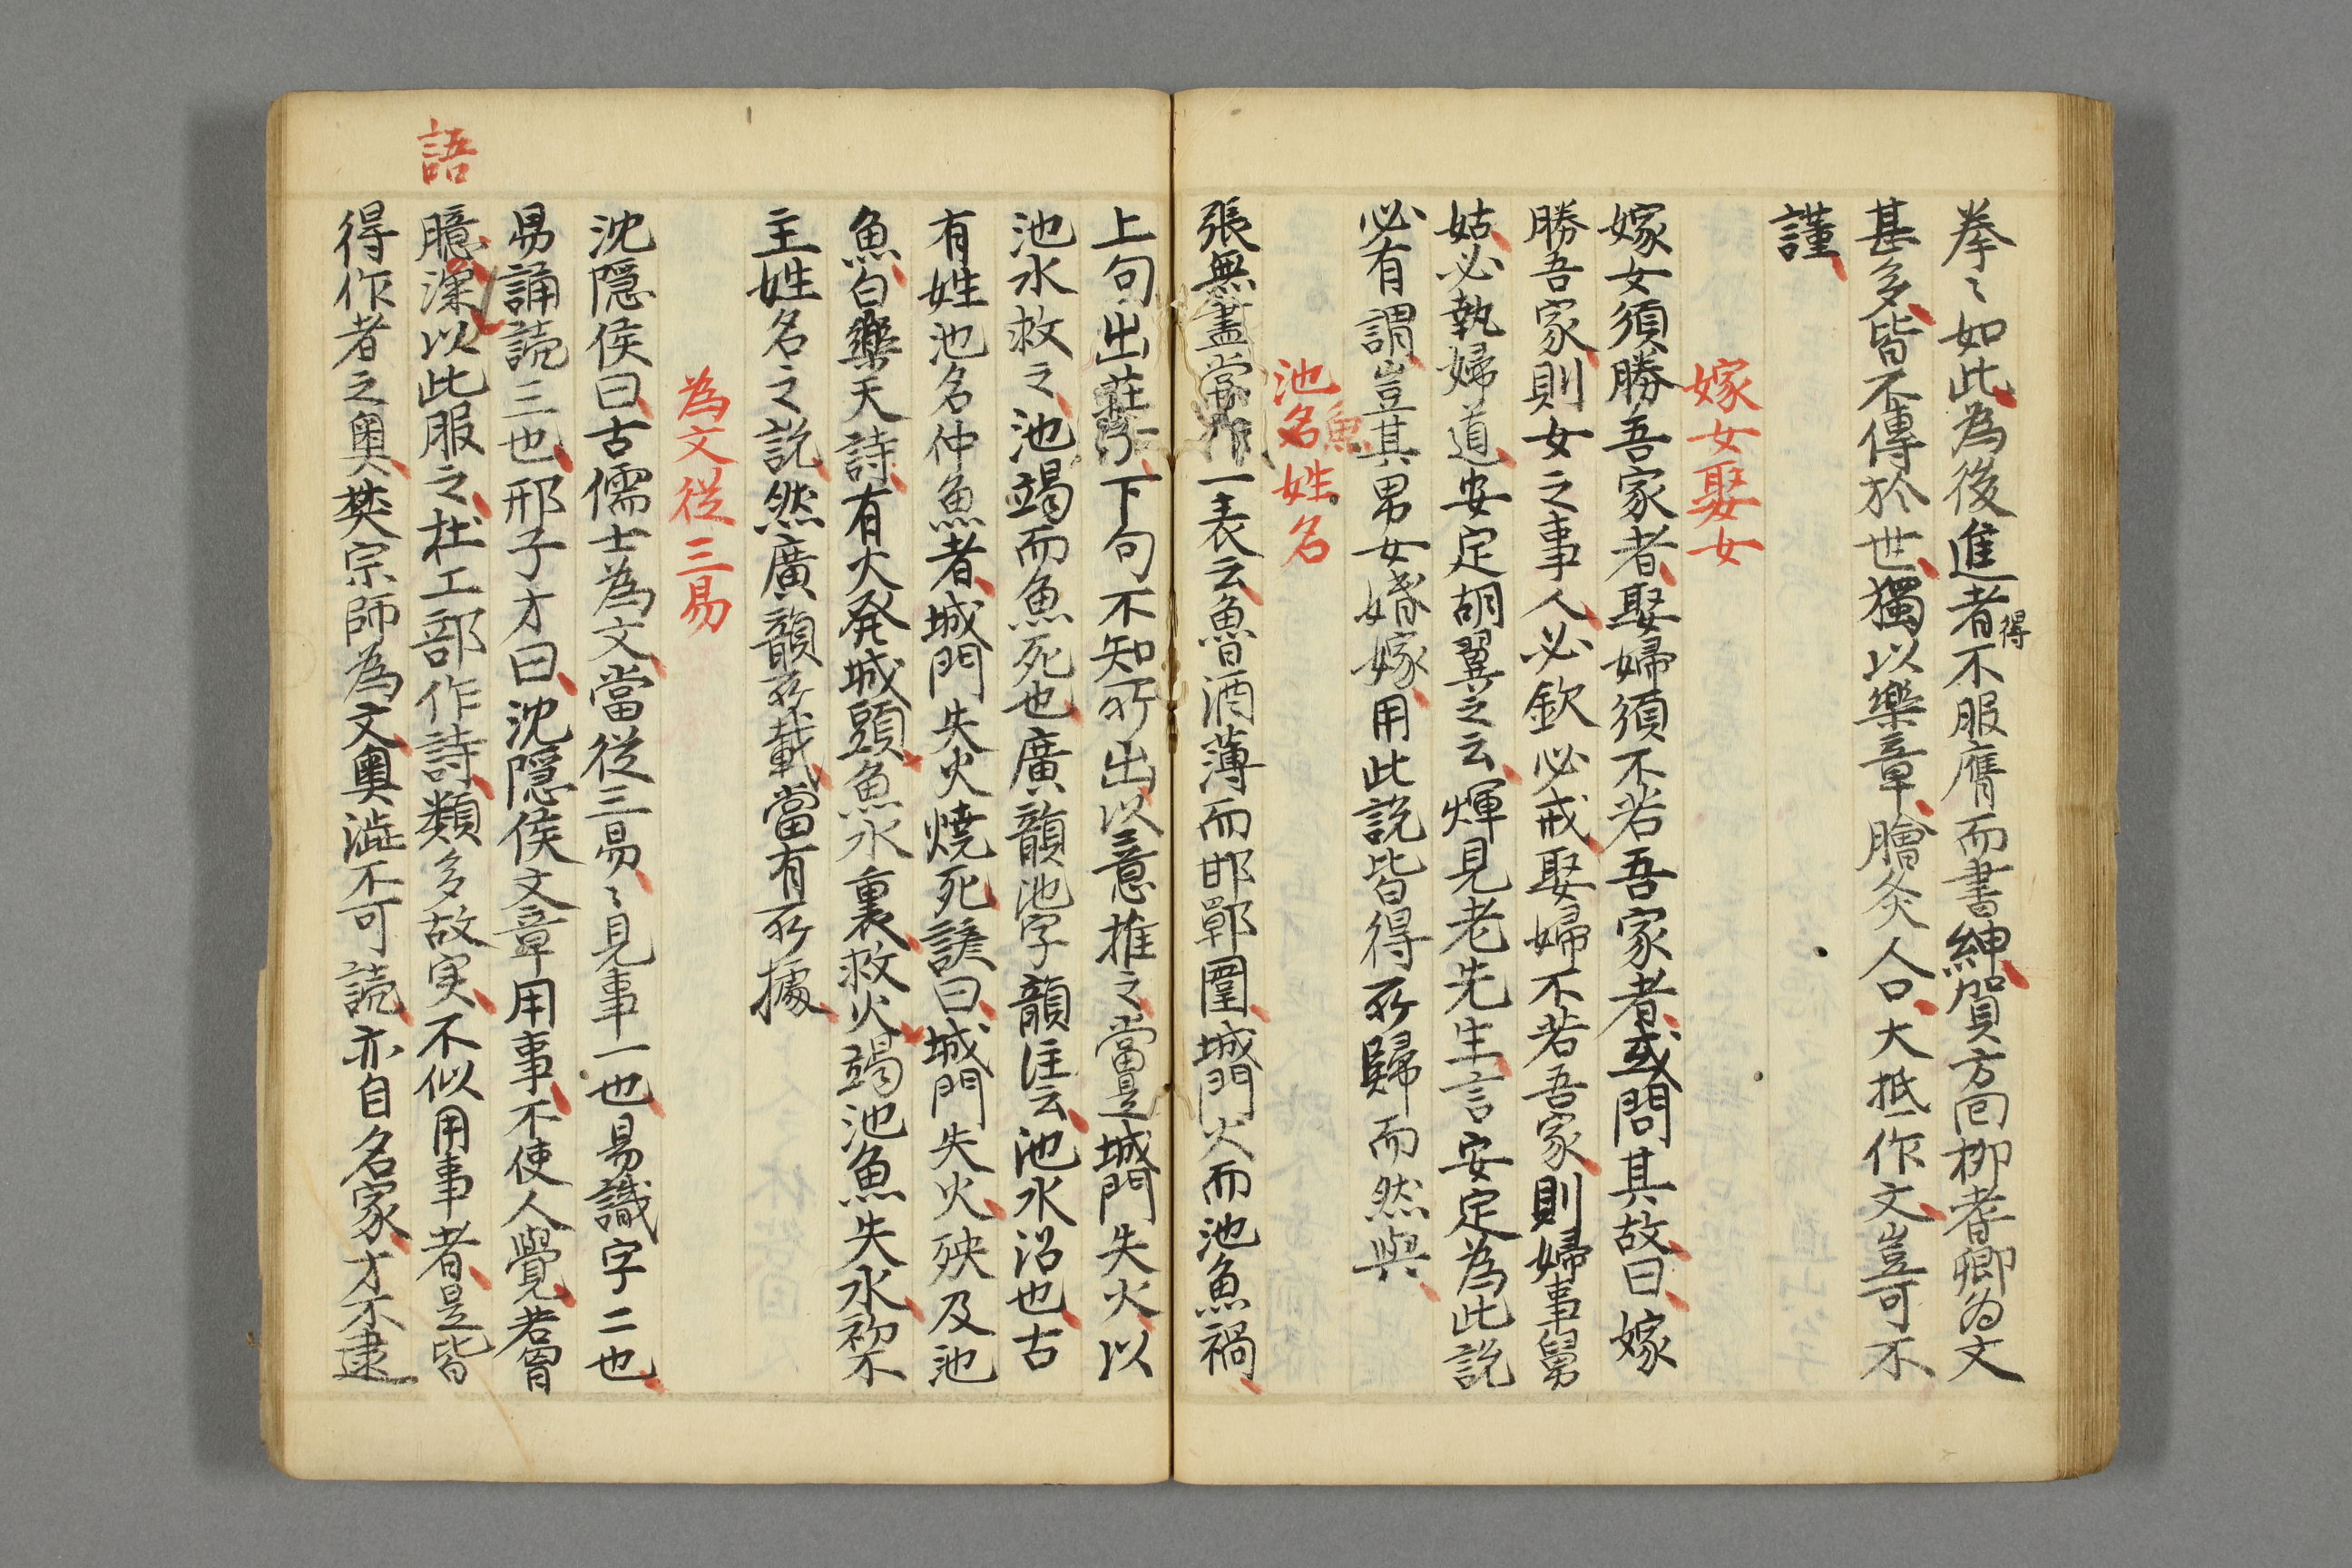 拳〻如此為後進者得不服膺而書紳賀方回柳耆卿為文
甚多皆不傳於世獨以樂章膾炙人口大抵作文豈可不
謹
嫁女娶女
嫁女須勝吾家者娶婦須不若吾家者或問其故曰嫁
勝吾家則女之事人必欽必戒娶婦不若吾家則婦事舅
姑必執婦道安定胡翼之云煇見老先生言安定為此説
必有謂豈其男女婚嫁用此説皆得所歸而然與
池魚名姓名
張無盡嘗作一表云魯酒薄而邯鄲圍城門火而池魚禍
上句出莊子下句不知所出以意推之當是城門失火以
池水救之池竭而魚死也廣韻池字韻注云池水沼也古
有姓池名仲魚者城門失火燒死諺曰城門失火殃及池
魚白樂天詩有火発城頭魚水裏救火竭池魚失水初不
主姓名之説然廣韻所載當有所據
為文從三易
沈隠侯曰古儒士為文當從三易〻見事一也易識字二也
易誦読三也邢子才曰沈隠侯文章用事不使人覺若胷
語
臆深以此服之杜工部作詩類多故实不似用事者是皆
得作者之奥樊宗師為文奥澁不可読亦自名家才不逮